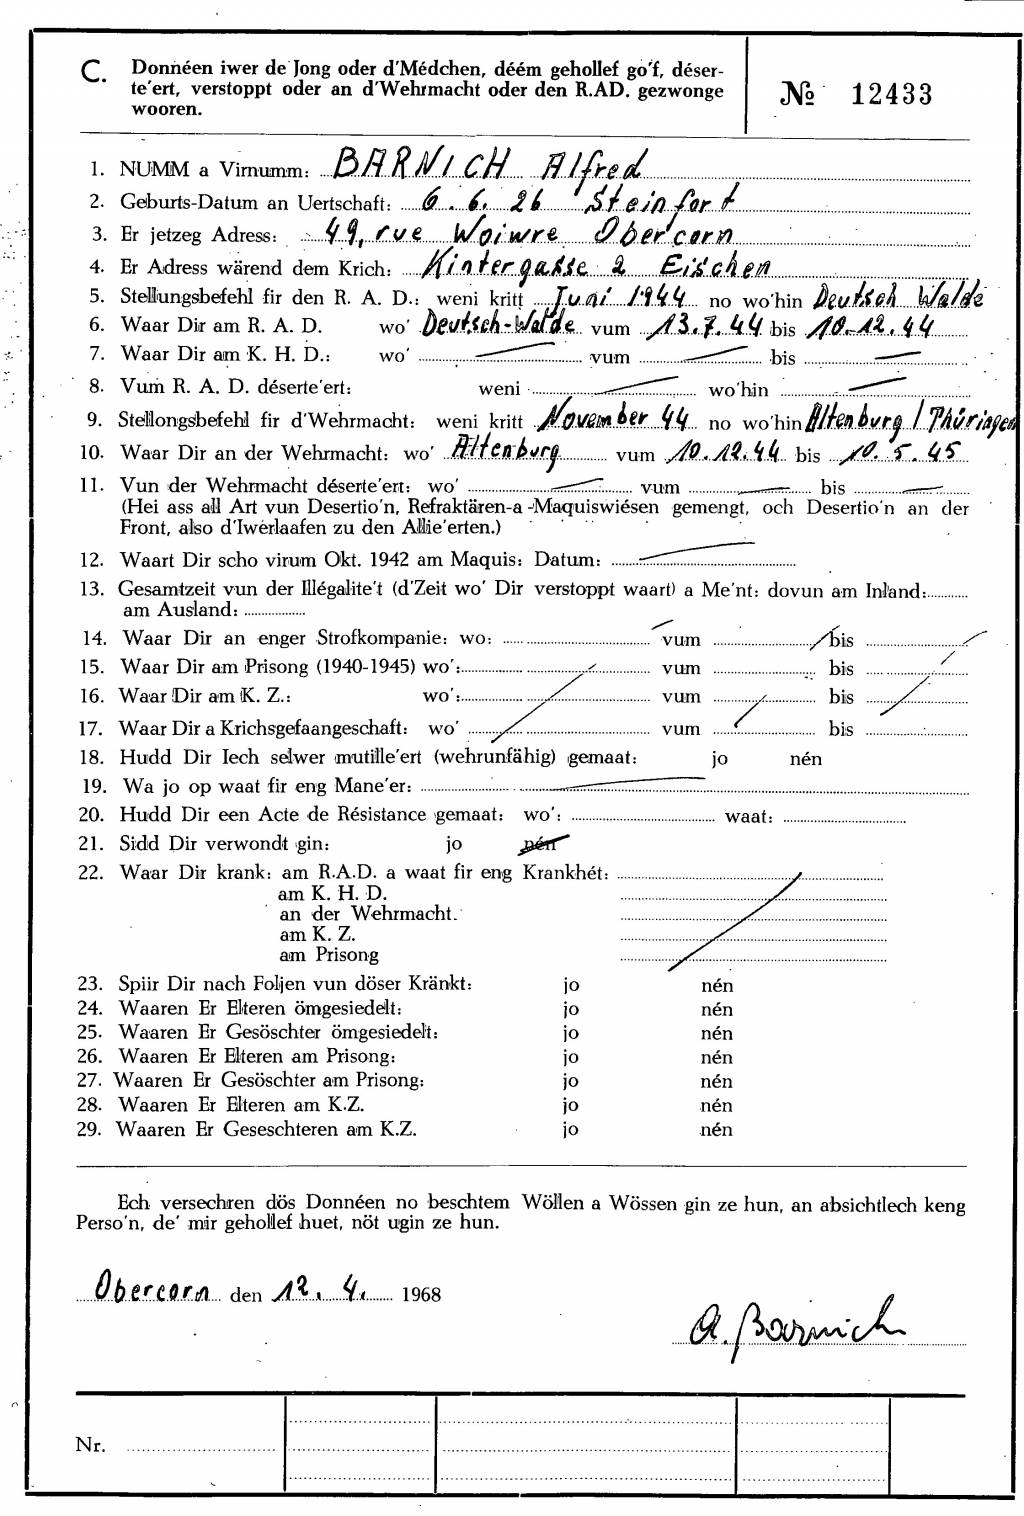 C. Donnéen iwer de Jong oder d'Médchen, déém gehollef go'f, déser-
te'ert, verstoppt oder an d'Wehrmacht oder den R.AD. gezwonge
wooren.
№ 12433
1. NUMM a Virnumm: BARNICH Alfred
2. Geburts-Datum an Uertschaft: 6. 6. 26 Steinfort
3. Er jetzeg Adress: 49, rue Woiwre Obercorn
4. Er Adress wärend dem Krich: Kintergasse 2 Eischen
5. Stellungsbefehl fir den R. A. D.: weni kritt Juni 1944 no wo'hin Deutsch Walde
6. Waar Dir am R. A. D. wo' Deutsch-Walde vum 13.7.44 bis 10.12.44
7. Waar Dir am K. H. D.: wo' vum bis
8. Vum R. A. D. déserte'ert: weni wo'hin
9. Stellongsbefehl fir d'Wehrmacht: weni kritt November 44 no wo'hin Altenburg / Thüringen
10. Waar Dir an der Wehrmacht: wo' Altenburg vum 10.12.44 bis 10.5.45
11. Vun der Wehrmacht déserte'ert: wo' vum bis
(Hei ass all Art vun Desertio'n, Refraktären-a -Maquiswiésen gemengt, och Desertio'n an der
Front, also d'Iwerlaafen zu den Allie'erten.)
12. Waart Dir scho virum Okt. 1942 am Maquis: Datum:
13. Gesamtzeit vun der Illégalite't (d'Zeit wo' Dir verstoppt waart) a Me'nt: dovun am Inland:
am Ausland:
14. Waar Dir an enger Strofkompanie: wo: vum bis
15. Waar Dir am Prisong (1940-1945) wo': vum bis
16. Waar Dir am K. Z.: wo': vum bis
17. Waar Dir a Krichsgefaangeschaft: wo' vum bis
18. Hudd Dir Iech selwer mutille'ert (wehrunfähig) gemaat: jo nén
19. Wa jo op waat fir eng Mane'er:
20. Hudd Dir een Acte de Résistance gemaat: wo': waat:
21. Sidd Dir verwondt gin: jo nén
22. Waar Dir krank: am R.A.D. a waat fir eng Krankhét:
am K. H. D.
an der Wehrmacht.
am K. Z.
am Prisong
23. Spiir Dir nach Foljen vun döser Kränkt: jo nén
24. Waaren Er Elteren ömgesiedelt: jo nén
25. Waaren Er Gesöschter ömgesiedelt: jo nén
26. Waaren Er Elteren am Prisong: jo nén
27. Waaren Er Gesöschter am Prisong: jo nén
28. Waaren Er Elteren am K.Z. jo nén
29. Waaren Er Geseschteren am K.Z. jo nén
Ech versechren dös Donnéen no beschtem Wöllen a Wössen gin ze hun, an absichtlech keng
Perso'n, de' mir gehollef huet, nöt ugin ze hun.
Obercorn den 12. 4. 1968
A. Barnich
Nr.